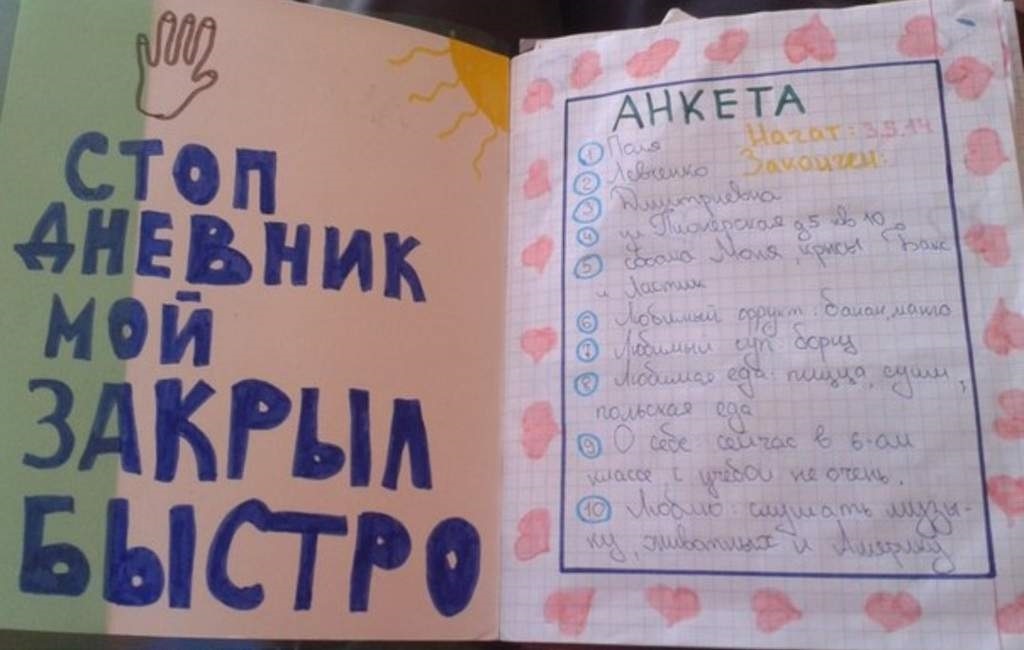 СТОП
ДНЕВНИК
МОЙ
ЗАКРЫЛ
БЫСТРО
АНКЕТА
Начат: 3.9.14
Закончен:
1 Поля
2 Левченко
3 Дмитриевна
4 ул Пионерская д5 кв 10
5 собака Моня, крысы Бакс
и Ластик
6 Любимый фрукт: банан, манго
7 Любимый суп борщ
8 Любимая еда: пицца, суши,
польская еда
9 О себе сейчас в 6-ом
классе, с учёбой не очень.
10 Люблю: слушать музы-
ку, животных и Америку